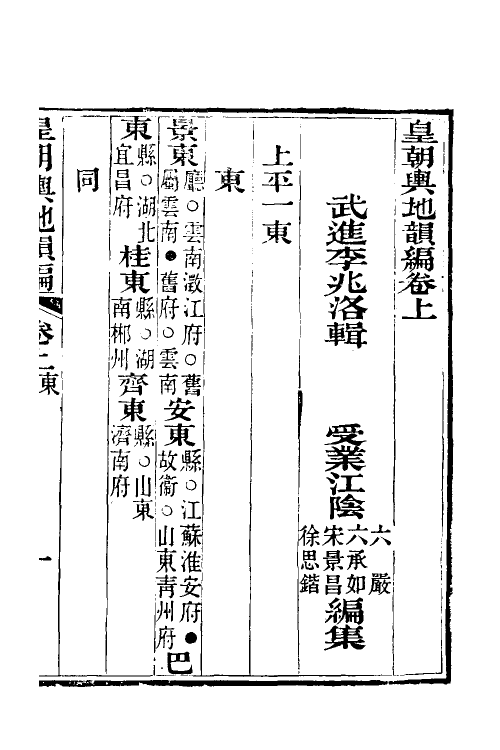 皇朝輿地韻編卷上
武進李兆洛輯
受業江陰
六嚴
六承如
宋景昌
徐思鍇
編集
上平一東
東
景東
廳○雲南澂江府○舊
屬雲南●舊府○雲南
安東
縣○江蘇淮安府●
故衞○山東靑州府
巴
東
縣○湖北
宜昌府
桂東
縣○湖
南郴州
齊東
縣○山東
濟南府
同
皇朝輿地韻編
卷上
一東
一